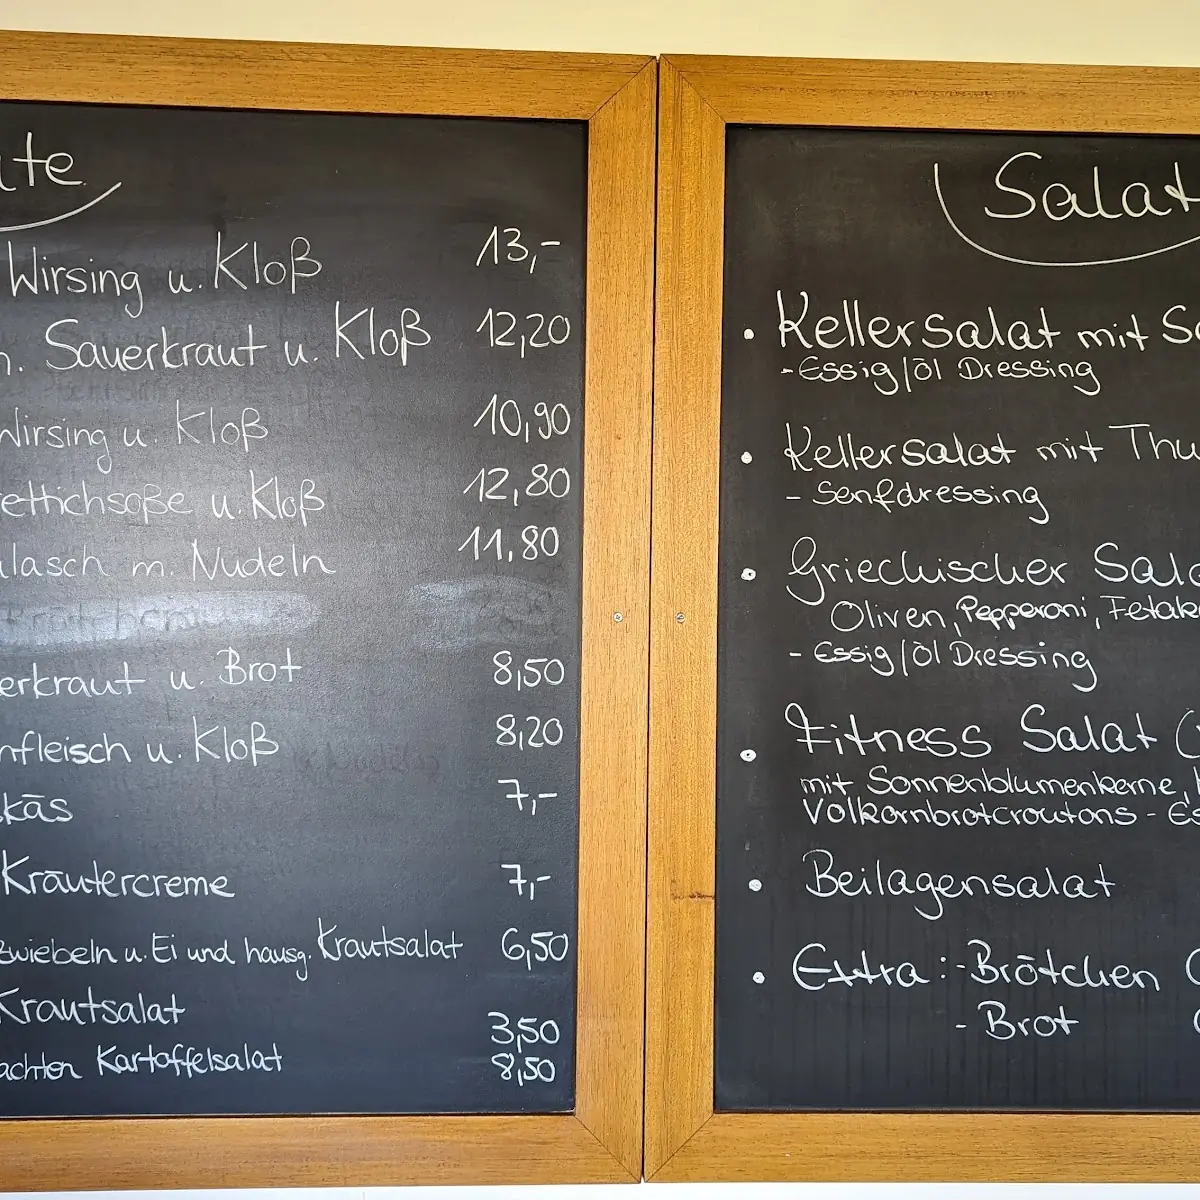 Wirsing u. Kloß 13,-
Sauerkraut u. Kloß 12,20
Wirsing u. Kloß 10,90
u. Kloß 12,80
m. Nudeln 11,80
u. Brot 8,50
u. Kloß 8,20
7,-
Kräutercreme 7,-
zwiebeln u. Ei und hausg. Krautsalat 6,50
Krautsalat 3,50
Kartoffelsalat 8,50
Salat
• Kellersalat mit
- Essig/Öl Dressing
• Kellersalat mit Thu
- Senfdressing
• Griechischer Sala
Oliven, Pepperoni, Fetak
- Essig/Öl Dressing
• Fitness Salat (
mit Sonnenblumenkerne,
Volkornbrotcroutons - Es
• Beilagensalat
• Extra: - Brötchen
- Brot